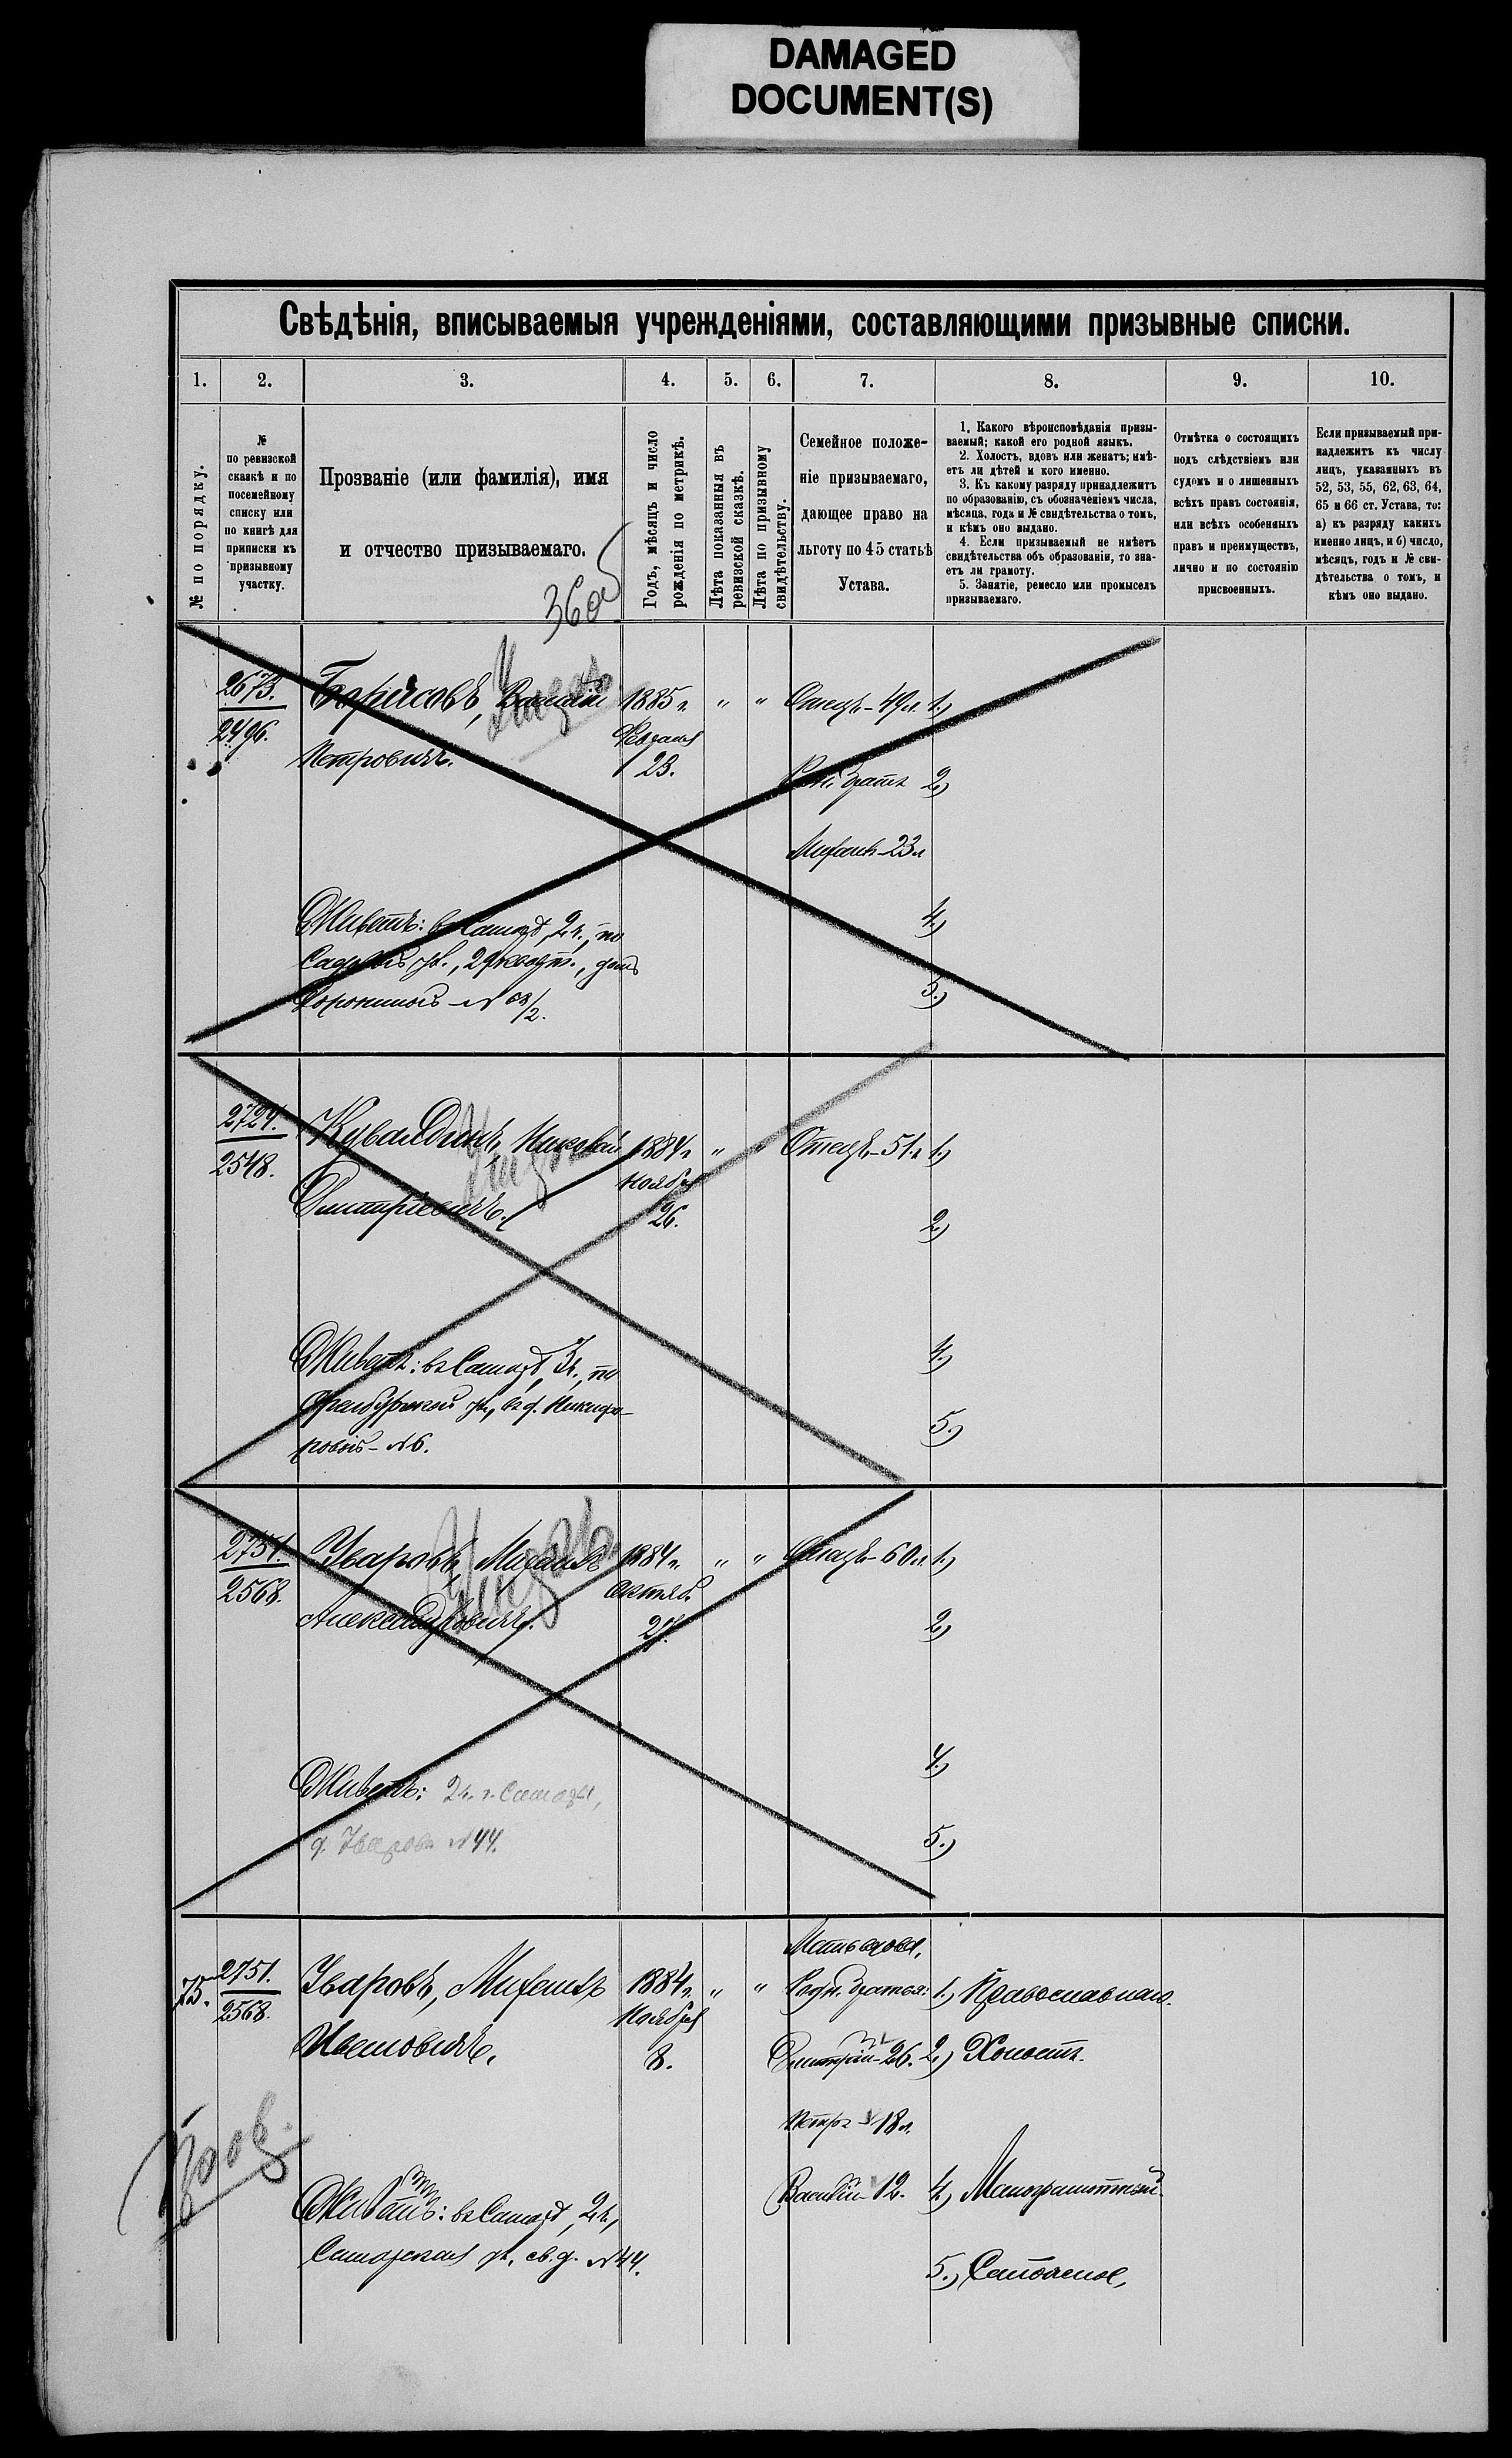 DAMAGED
DOCUMENT(S)
Свѣдѣнія, вписываемыя учрежденіями, составляющими призывные списки.
1. 2. 3. 4. 5. 6. 7. 8. 9. 10.
№ по порядку.
№
по ревизской
сказкѣ и по
посемейному
списку или
по книгѣ для
приписки къ
призывному
участку.
Прозваніе (или фамилія), имя
и отчество призываемаго.
Годъ, мѣсяцъ и число
рожденія по метрикѣ.
Лѣта показанныя въ
ревизской сказкѣ.
Лѣта по призывному
свидѣтельству.
Семейное положе-
ніе призываемаго,
дающее право на
льготу по 45 статьѣ
Устава.
1. Какого вѣроисповѣданія призы-
ваемый; какой его родной языкъ.
2. Холостъ, вдовъ или женатъ; имѣ-
етъ ли дѣтей и кого именно.
3. Къ какому разряду принадлежитъ
по образованію, съ обозначеніемъ числа,
мѣсяца, года и № свидѣтельства о томъ,
и кѣмъ оно выдано.
4. Если призываемый не имѣетъ
свидѣтельства объ образованіи, то зна-
етъ ли грамоту.
5. Занятіе, ремесло или промыселъ
призываемаго.
Отмѣтка о состоящихъ
подъ слѣдствіемъ или
судомъ и о лишенныхъ
всѣхъ правъ состоянія,
или всѣхъ особенныхъ
правъ и преимуществъ,
лично и по состоянію
присвоенныхъ.
Если призываемый при-
надлежитъ къ числу
лицъ, указанныхъ въ
52, 53, 55, 62, 63, 64,
65 и 66 ст. Устава, то:
а) къ разряду какихъ
именно лицъ, и б) число,
мѣсяцъ, годъ и № сви-
дѣтельства о томъ, и
кѣмъ оно выдано.
2673. Борисовъ, Василій 1885 г. " " Отецъ-49 л. 1.)
2496. Петровичъ. Февраля
23.
Родн. братъ 2)
Михаилъ-23 л
Живетъ: въ Самарѣ, 2 ч., по 4.)
домъ
Сорокиной- № 5.)
2724. Кувалдинъ, Николай 1884 г. " " Отецъ-51 л 1.)
2548. Дмитріевичъ. Ноября
26. 2.)
Живетъ: въ Самарѣ, 3 ч., по 4.)
Оренбургской ул., въ д. Никифо-
ровой- №6. 5.)
2751. Уваровъ, Михаилъ 1884 г. " " Отецъ-60 л 1.)
2568. Александровичъ. Октяб.
27. 2)
Живетъ: 2 ч. г. Самары, 4.)
д. Уварова №44. 5.)
Мать вдова,
75. 2751. Уваровъ, Михаилъ 1884 г. " " Родн. братья: 1.) Православнаго.
2568. Ноября
Ивановичъ. 8. Дмитрій-26. 2.) Холостъ.
Петръ-18 л.
Василій-12. 4.) Малограмотный.
Живетъ: въ Самарѣ, 2 ч.,
Самарская ул., св. д. №44. 5.)